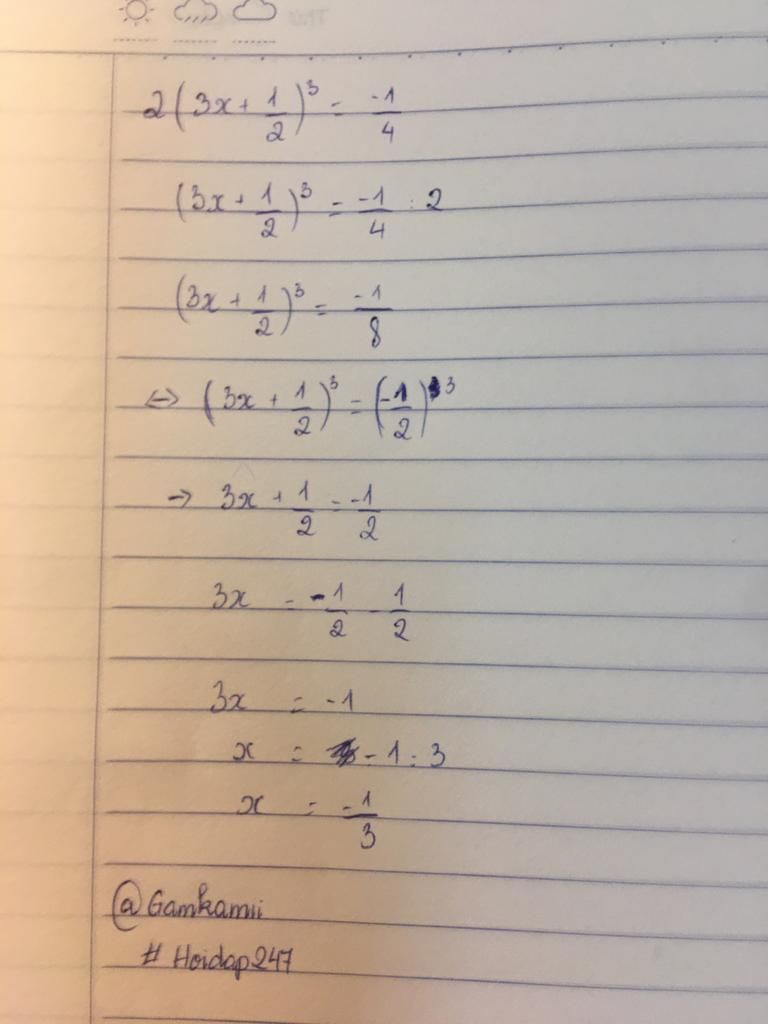 2(3x + 1/2)³ = -1/4
(3x + 1/2)³ = -1/4 : 2
(3x + 1/2)³ = -1/8
<-> (3x + 1/2)³ = (-1/2)³
-> 3x + 1/2 = -1/2
3x = -1/2 - 1/2
3x = -1
x = -1 : 3
x = -1/3
@Gamkamii
# Hoidap247